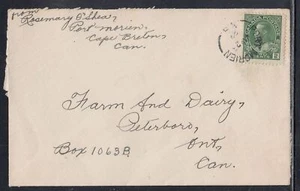 From
Rosemary O'Shea,
Port Morien,
Cape Breton,
Can.
Farm And Dairy,
Peterboro,
Box 1063B
Ont,
Can.